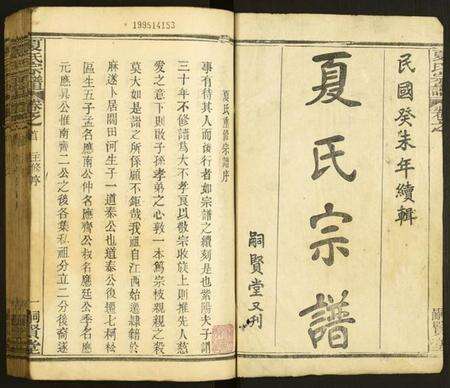 民國癸未年續輯
夏氏宗譜
嗣賢堂又刊
199514153
夏氏重修宗譜序
事有待其人而後行者如宗譜之續刻是也紫陽夫子謂
三十年不修譜為大不孝良以敬宗收族上則推先人慈
愛之意下則啟子孫孝弟之心敦一本篤宗枝親親之殺
莫大如是譜之所係顧不鉅哉我祖自江西始遷隸籍於
麻遂卜居閻田河生子一道泰公也道泰公後遷七柯松
區生五子孟名應南公仲名應齊公叔名應廷公季名應
元應 公惟南齊二公之後各集私祖分立二分後裔逐
夏氏宗譜
卷之首
序
一
嗣賢堂